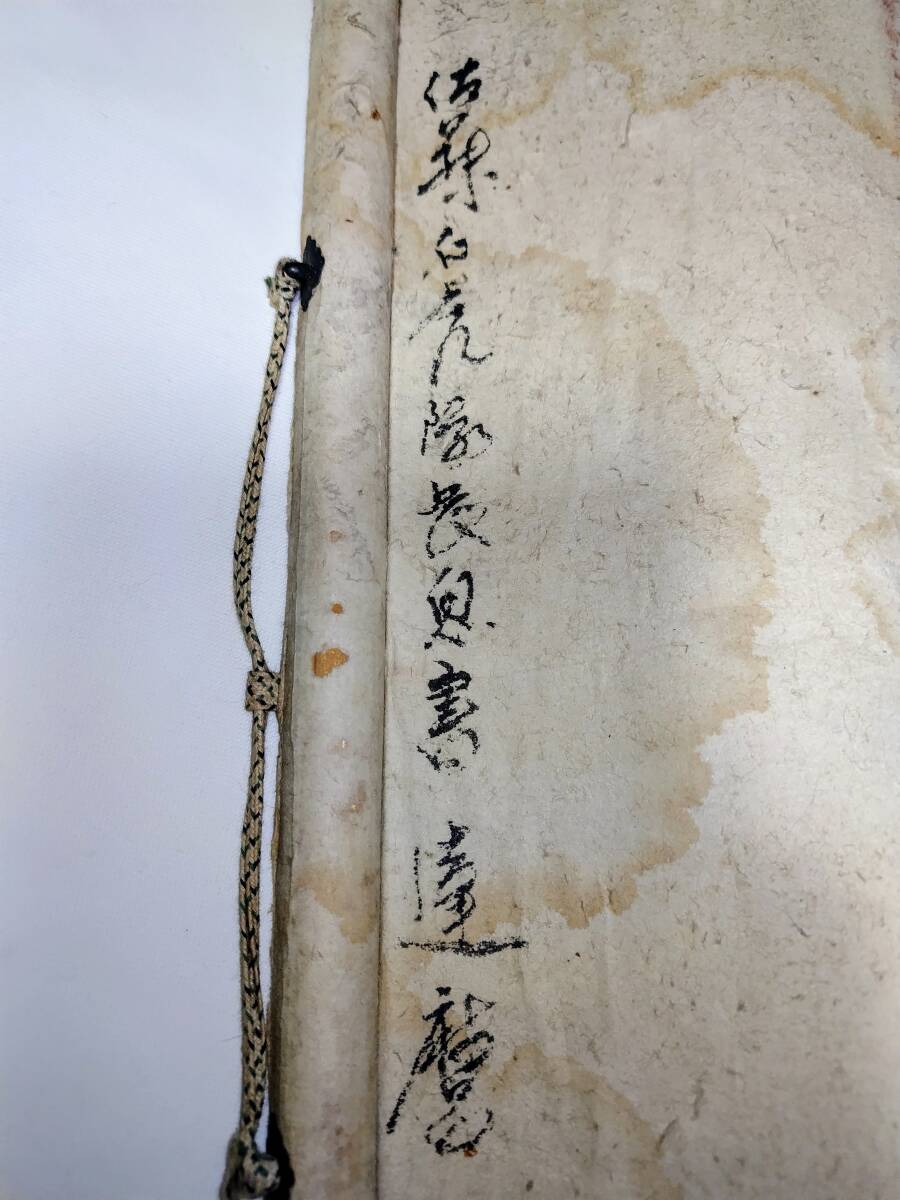 佐藤白虎隊長息書 達磨